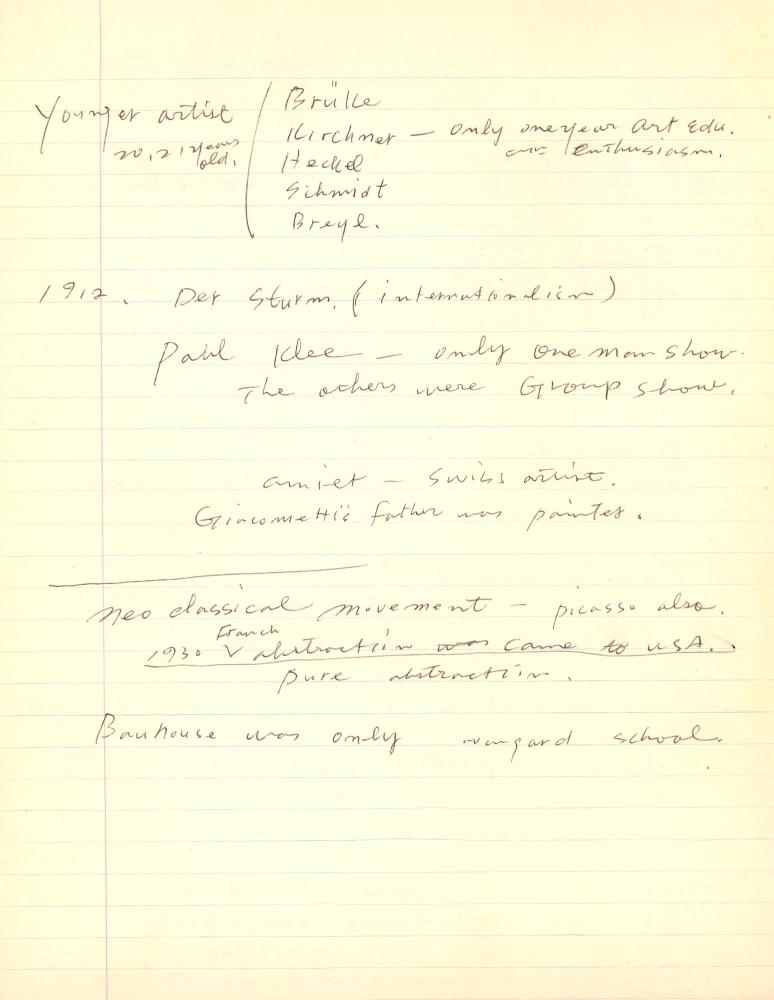 Younger artist
20, 21 years old.
Brülke
Kirchner — only one year Art Edu.
enthusiasm.
Heckel
Schmidt
Breyl.
1912. Der Sturm. (internationalism)
Paul Klee — only one man show.
The others were Group show.
amiet — Swiss artist.
Giacometti's father was painter.
neo classical movement — picasso also.
1930 Franch abstraction was came to USA.
pure abstraction.
Bauhouse was only avangard school.